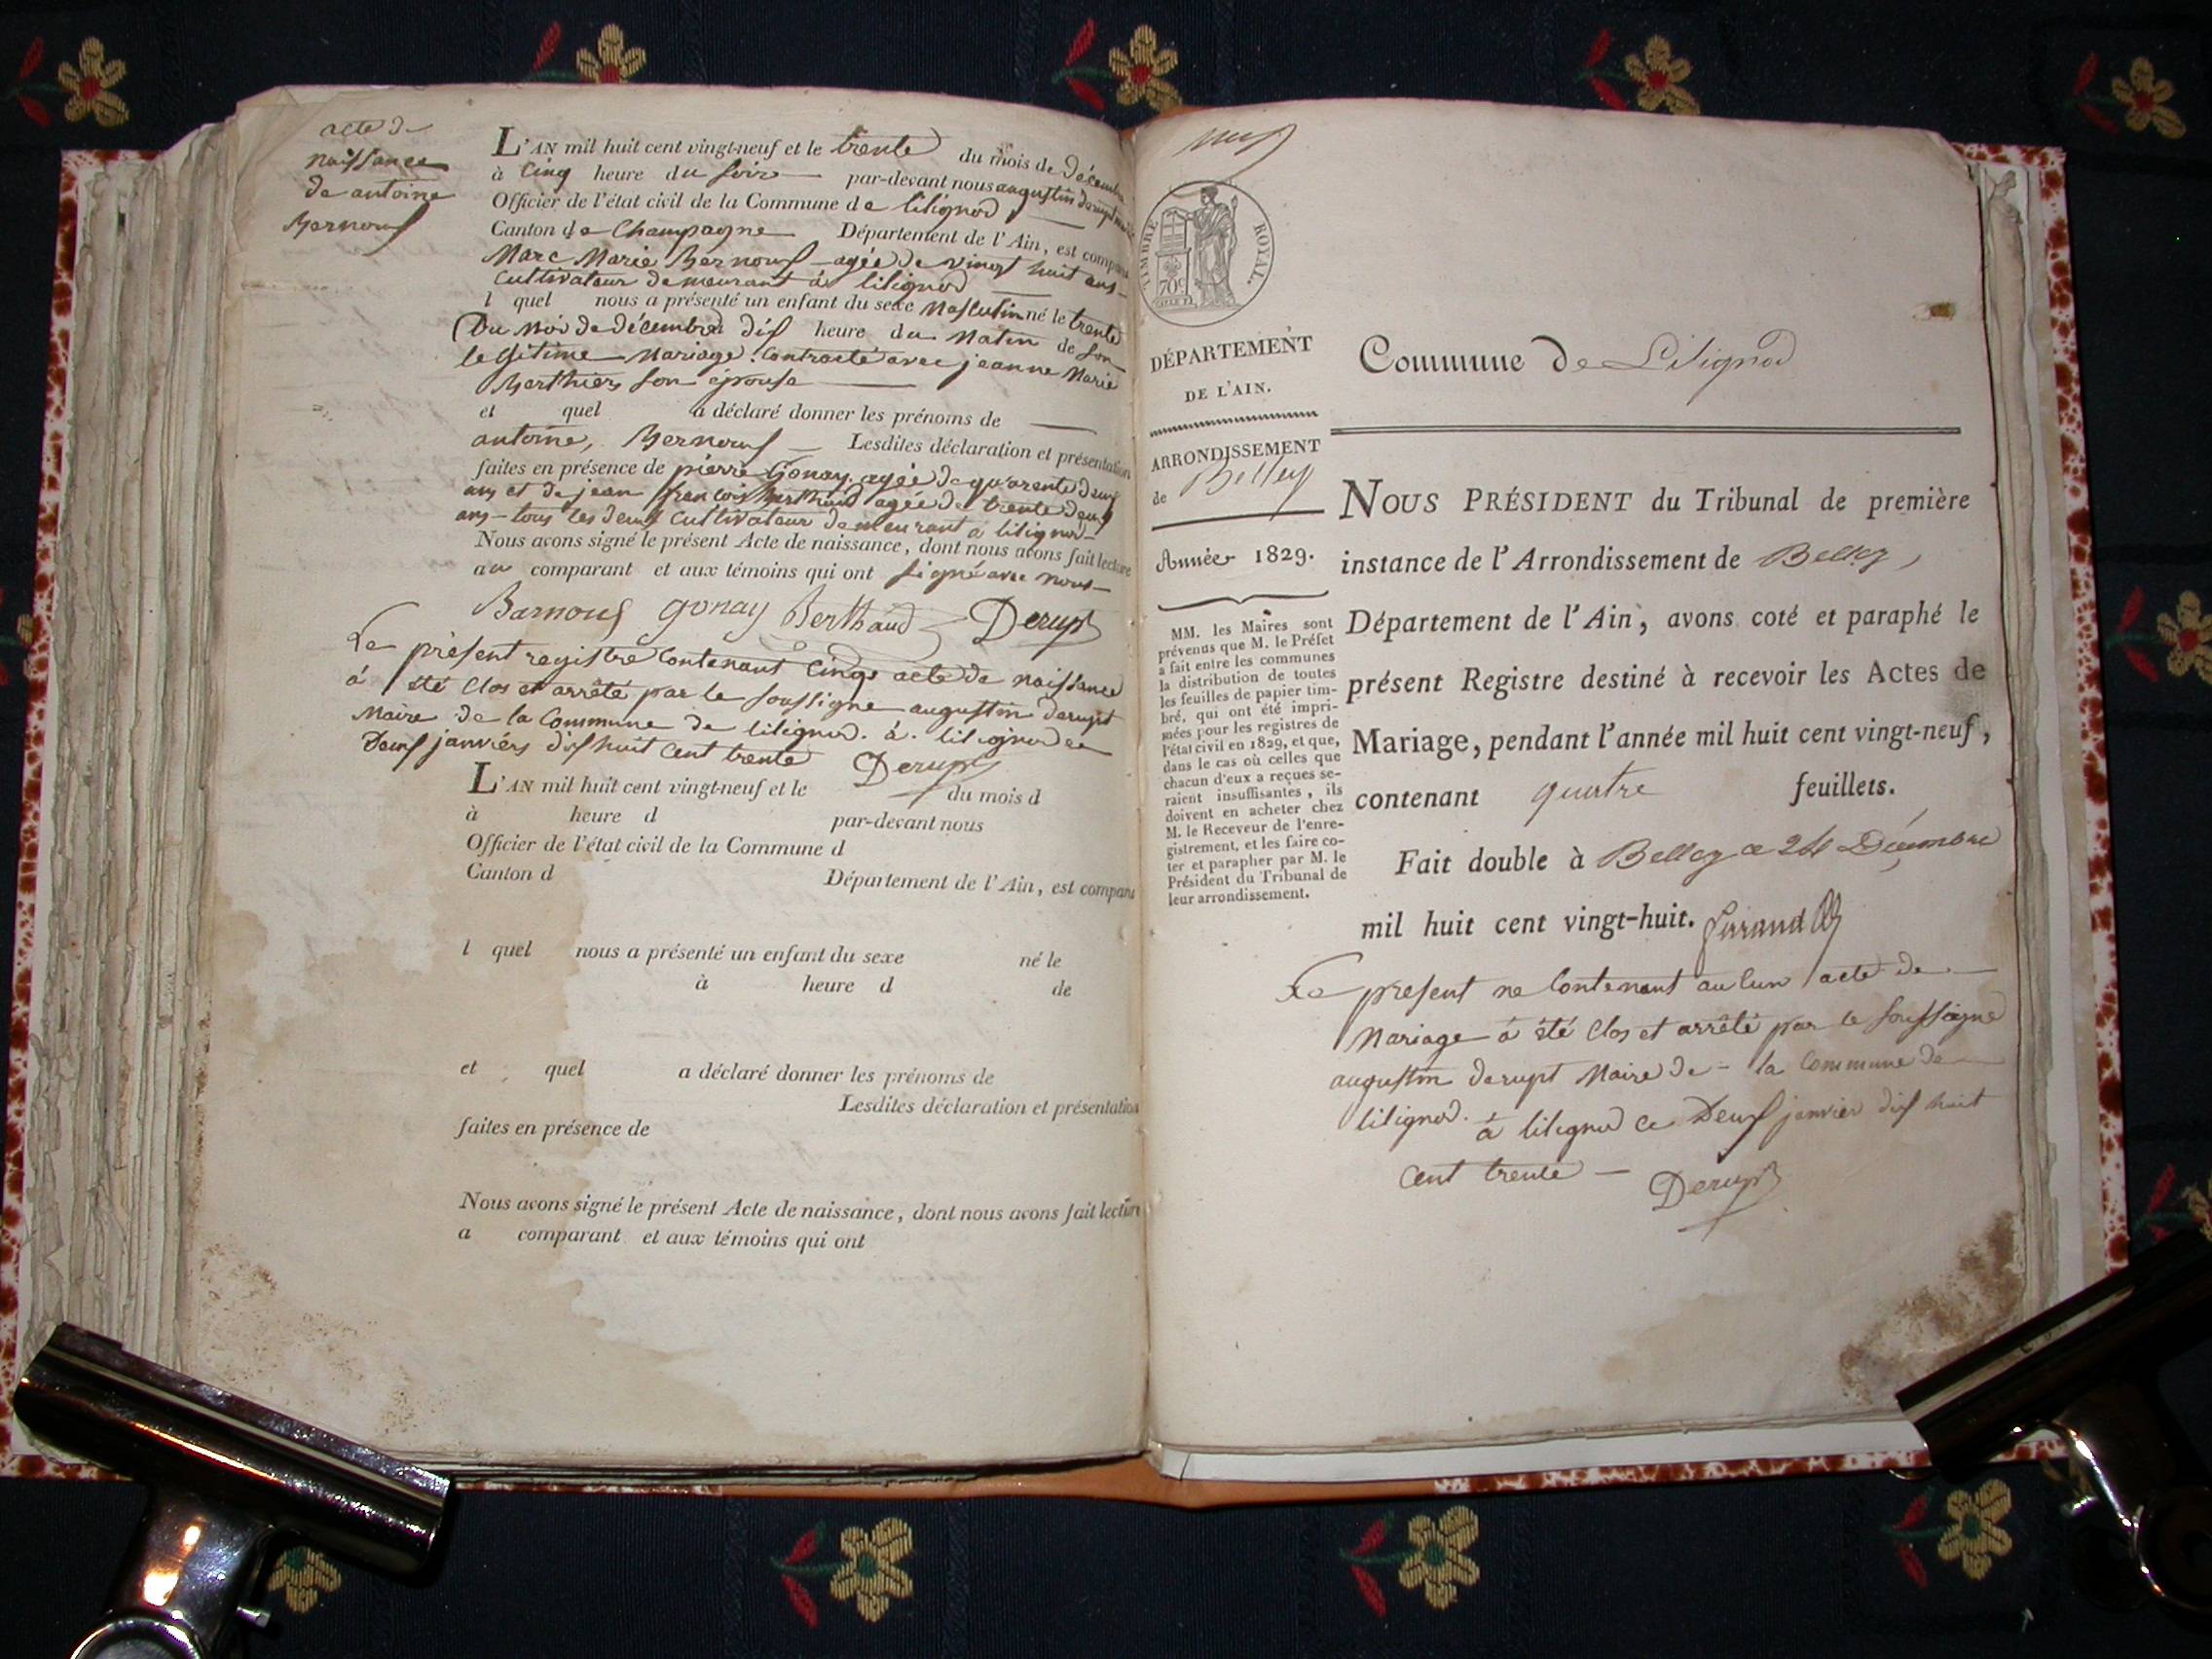 acte de
naissance
de antoine
Bernouf
L'AN mil huit cent vingt-neuf et le trente du mois de décembre
à cinq heure du soir par-devant nous augustin derupt
Officier de l'état civil de la Commune de lilignod
Canton de Champagne Département de l'Ain, est comparu
Marc Marie Bernouf agée de vingt huit ans
Cultivateur demeurant à lilignod
l quel nous a présenté un enfant du sexe Masculin né le trente
Du Mois de décembre dix heure du Matin de Son
legitime Mariage Contracté avec jeanne Marie
Berthier Son épouse
et quel a déclaré donner les prénoms de
antoine, Bernouf Lesdites déclaration et présentation
faites en présence de pierre Gonay agée de quarente deux
ans et de jean françois Berthaud agée de trente deux
ans tous les deux Cultivateur demeurant a lilignod
Nous avons signé le présent Acte de naissance, dont nous avons fait lecture
au comparant et aux témoins qui ont signé avec nous
Barnouf gonay Berthaud Derupt
Le présent registre Contenant Cinq acte de naissance
à été Clos et arrêté par le Soussigne augustin derupt
Maire de la Commune de lilignod. à lilignod ce
Deux janviers dix huit Cent trente Derupt
L'AN mil huit cent vingt-neuf et le du mois d
à heure d par-devant nous
Officier de l'état civil de la Commune d
Canton d Département de l'Ain, est comparu
l quel nous a présenté un enfant du sexe né le
à heure d de
et quel a déclaré donner les prénoms de
Lesdites déclaration et présentation
faites en présence de
Nous avons signé le présent Acte de naissance, dont nous avons fait lecture
a comparant et aux témoins qui ont
TIMBRE ROYAL
70c
DÉPARTEMENT
DE L'AIN.
ARRONDISSEMENT
de Belley
Année 1829.
MM. les Maires sont
prévenus que M. le Préfet
a fait entre les communes
la distribution de toutes
les feuilles de papier tim-
bré, qui ont été impri-
mées pour les registres de
l'état civil en 1829, et que,
dans le cas où celles que
chacun d'eux a reçues se-
raient insuffisantes, ils
doivent en acheter chez
M. le Receveur de l'enre-
gistrement, et les faire co-
ter et parapher par M. le
Président du Tribunal de
leur arrondissement.
Commune de Lilignod
NOUS PRÉSIDENT du Tribunal de première
instance de l'Arrondissement de Belley,
Département de l'Ain, avons coté et paraphé le
présent Registre destiné à recevoir les Actes de
Mariage, pendant l'année mil huit cent vingt-neuf,
contenant quatre feuillets.
Fait double à Belley ce 24 Décembre
mil huit cent vingt-huit.
Le présent ne Contenant aucun acte de
Mariage à été Clos et arrêté par le Soussigne
augustin derupt Maire de la Commune de
lilignod. à lilignod ce Deux janvier dix huit
Cent trente Derupt